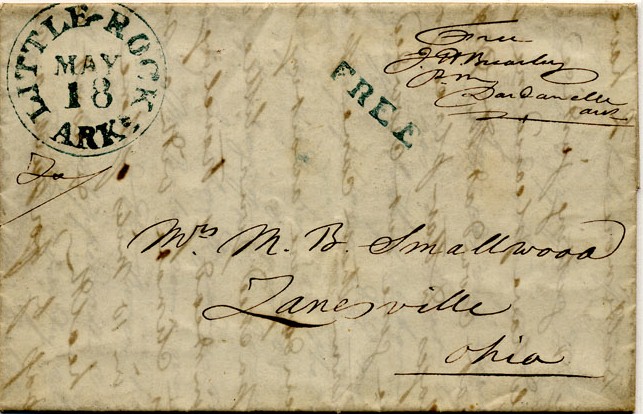 LITTLE-ROCK
MAY
18
ARKS
FREE
Free
P.M.
Dardanelle
Ark
To
Mrs M. B. Smallwood
Zanesville
Ohio